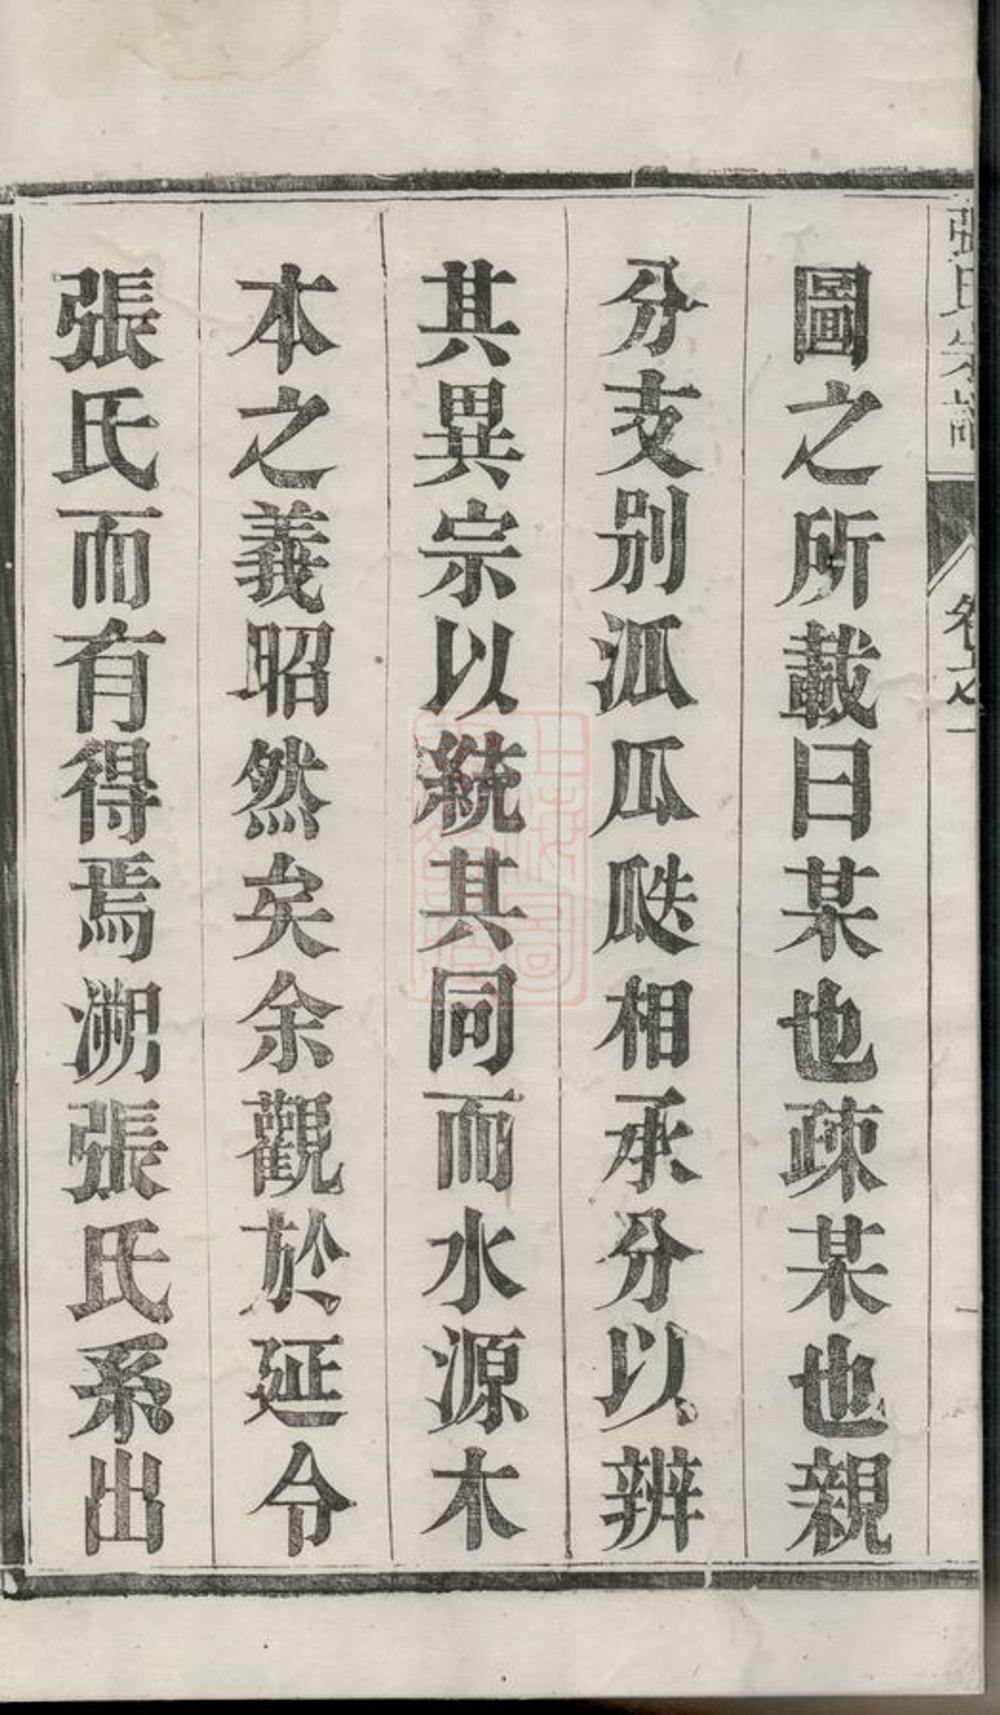 張氏宗譜 卷之一
圖之所載曰某也疎某也親
分支別泒瓜瓞相承分以辨
其異宗以統其同而水源木
本之義昭然矣余觀於延令
張氏而有得焉溯張氏系出